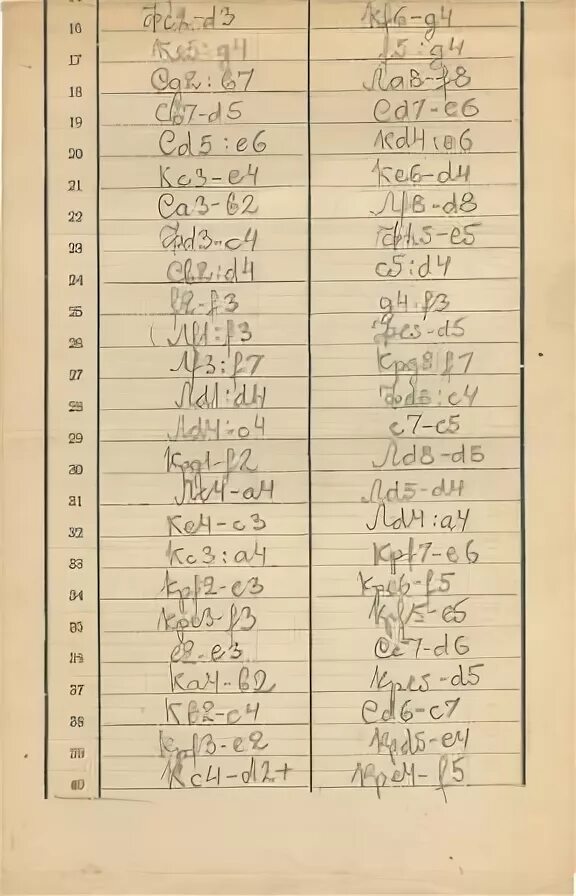 16 Фc2-d3 Кf6-g4
17 Кe5:g4 f5:g4
18 Сg2:b7 Ла8-f8
19 Сb7-d5 Сd7-e6
20 Сd5:e6 Кd4:e6
21 Кc3-e4 Кe6-d4
22 Са3-b2 Лf8-d8
23 Фd3-c4 Фh5-e5
24 Сb2:d4 c5:d4
25 f2-f3 g4:f3
26 Лf1:f3 Фe5-d5
27 Лf3:f7 Крg8:f7
28 Лd1:d4 Фd5:c4
29 Лd4:c4 c7-c5
30 Крg1-f2 Лd8-d5
31 Лc4-a4 Лd5-d4
32 Кe4-c3 Лd4:a4
33 Кc3:a4 Крf7-e6
34 Крf2-e3 Крe6-f5
35 Крe3-f3 Крf5-e5
e2-e3 Сe7-d6
37 Ка4-b2 Крe5-d5
38 Кb2-c4 Сd6-c7
Крf3-e2 Крd5-e4
40 Кc4-d2+ Крe4-f5